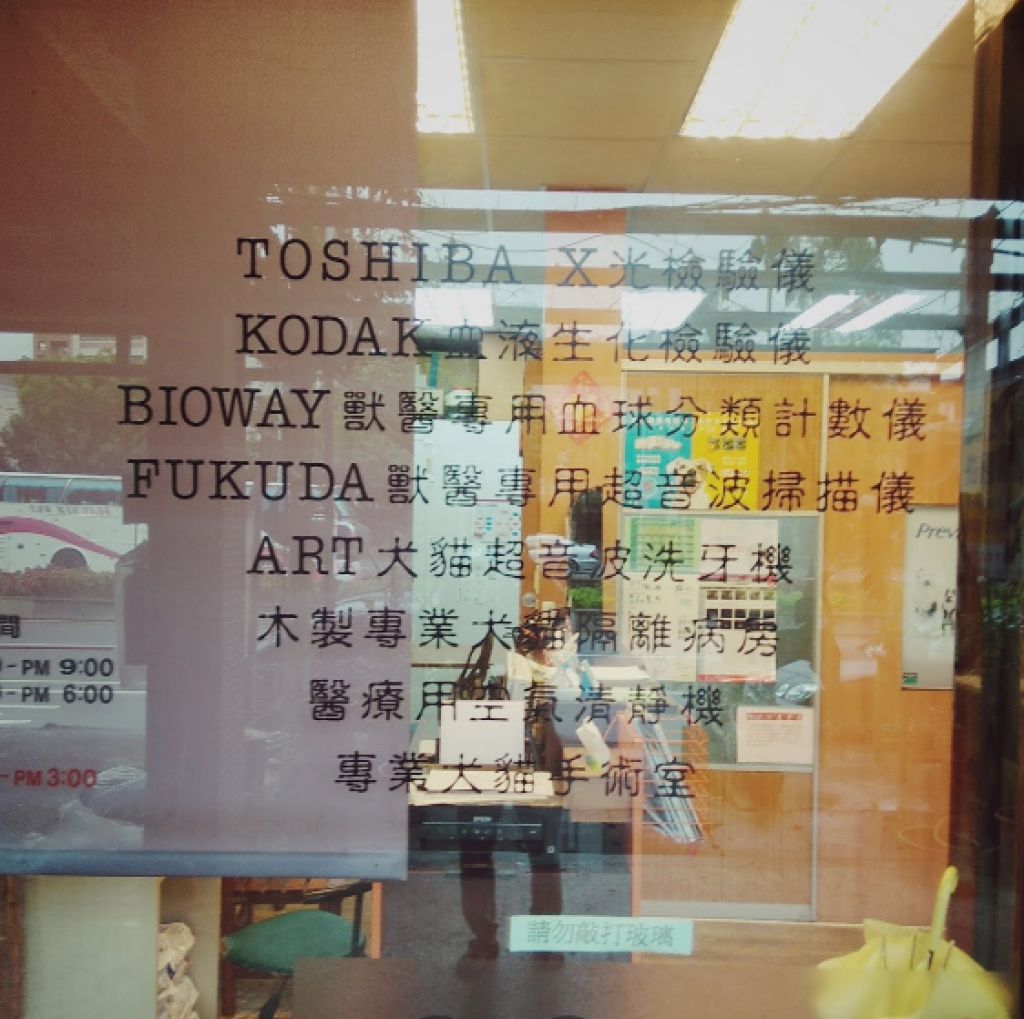 TOSHIBA X光檢驗儀
KODAK血液生化檢驗儀
BIOWAY獸醫專用血球分類計數儀
FUKUDA獸醫專用超音波掃描儀
ART犬貓超音波洗牙機
木製專業犬貓隔離病房
醫療用空氣清靜機
專業犬貓手術室
間
-PM 9:00
-PM 6:00
-PM 3:00
Prev
EPSON
請勿敲打玻璃